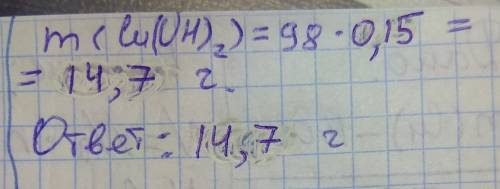 m(Cu(OH)₂) = 98 · 0,15 =
= 14,7 г.
Ответ: 14,7 г